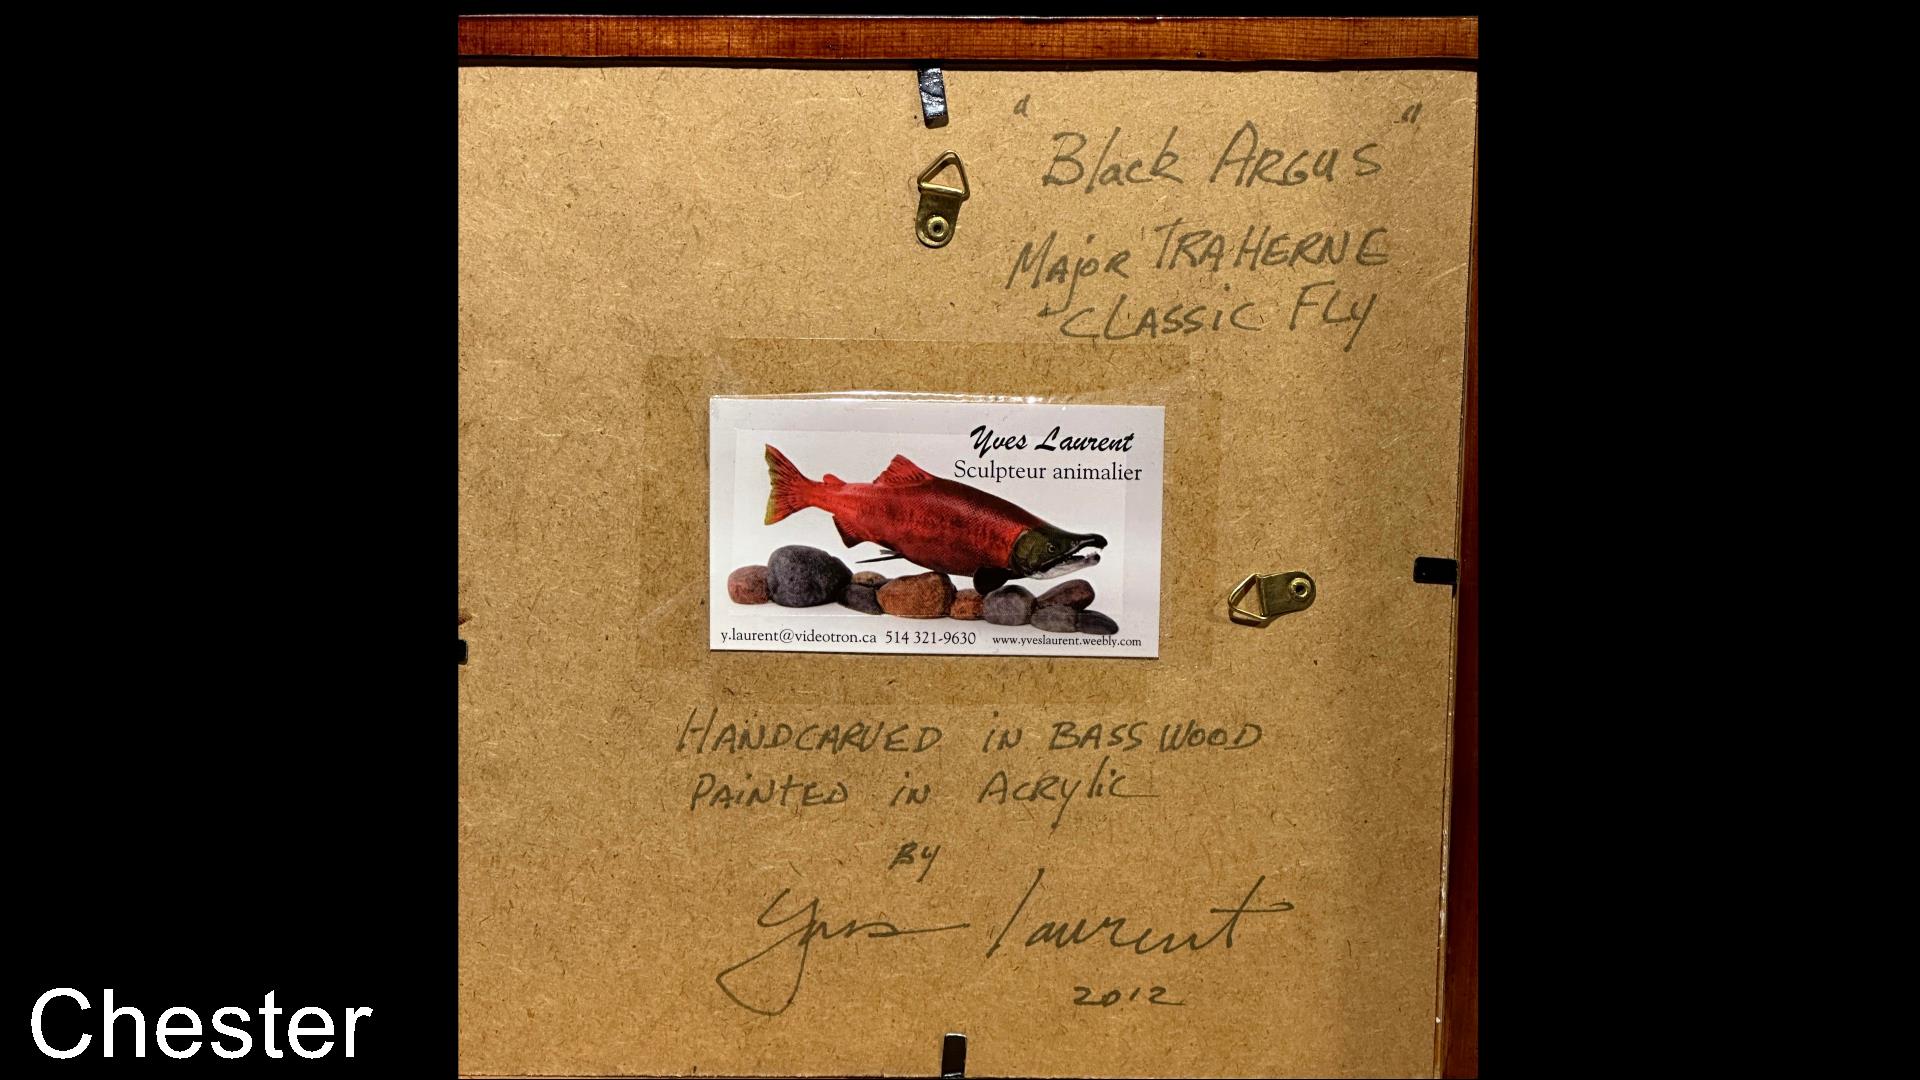 " Black ARGUS "
MAjOR TRAHERNE
CLASSiC FLy
Yves Laurent
Sculpteur animalier
y.laurent@videotron.ca 514 321-9630 www.yveslaurent.weebly.com
HANDCARVED iN BASS WOOD
PAiNTED iN ACRyliC
By
Yves Laurent
2012
Chester